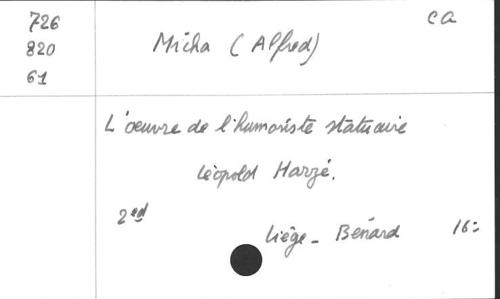 726
820
61
Micha (Alfred)
ca
L'oeuvre de l'humoriste statuaire
Léopold Harzé.
2ed
Liège - Bénard 16=